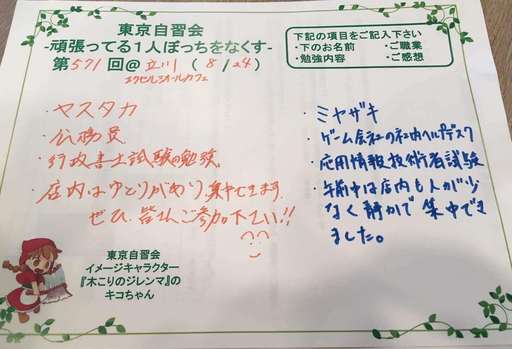 東京自習会
-頑張ってる1人ぼっちをなくす-
第571回@立川(8/24)
エクセルシオールカフェ
下記の項目をご記入下さい
・下のお名前 ・ご職業
・勉強内容 ・ご感想
・ヤスタカ
・公務員
・行政書士試験の勉強
・店内はゆとりがあり、集中できます。
ぜひ、皆さんご参加下さい!!
・ミヤザキ
・ゲーム会社の社内ヘルプデスク
・応用情報技術者試験
・午前中は店内も人が少
なく静かで集中でき
ました。
東京自習会
イメージキャラクター
『木こりのジレンマ』の
キコちゃん